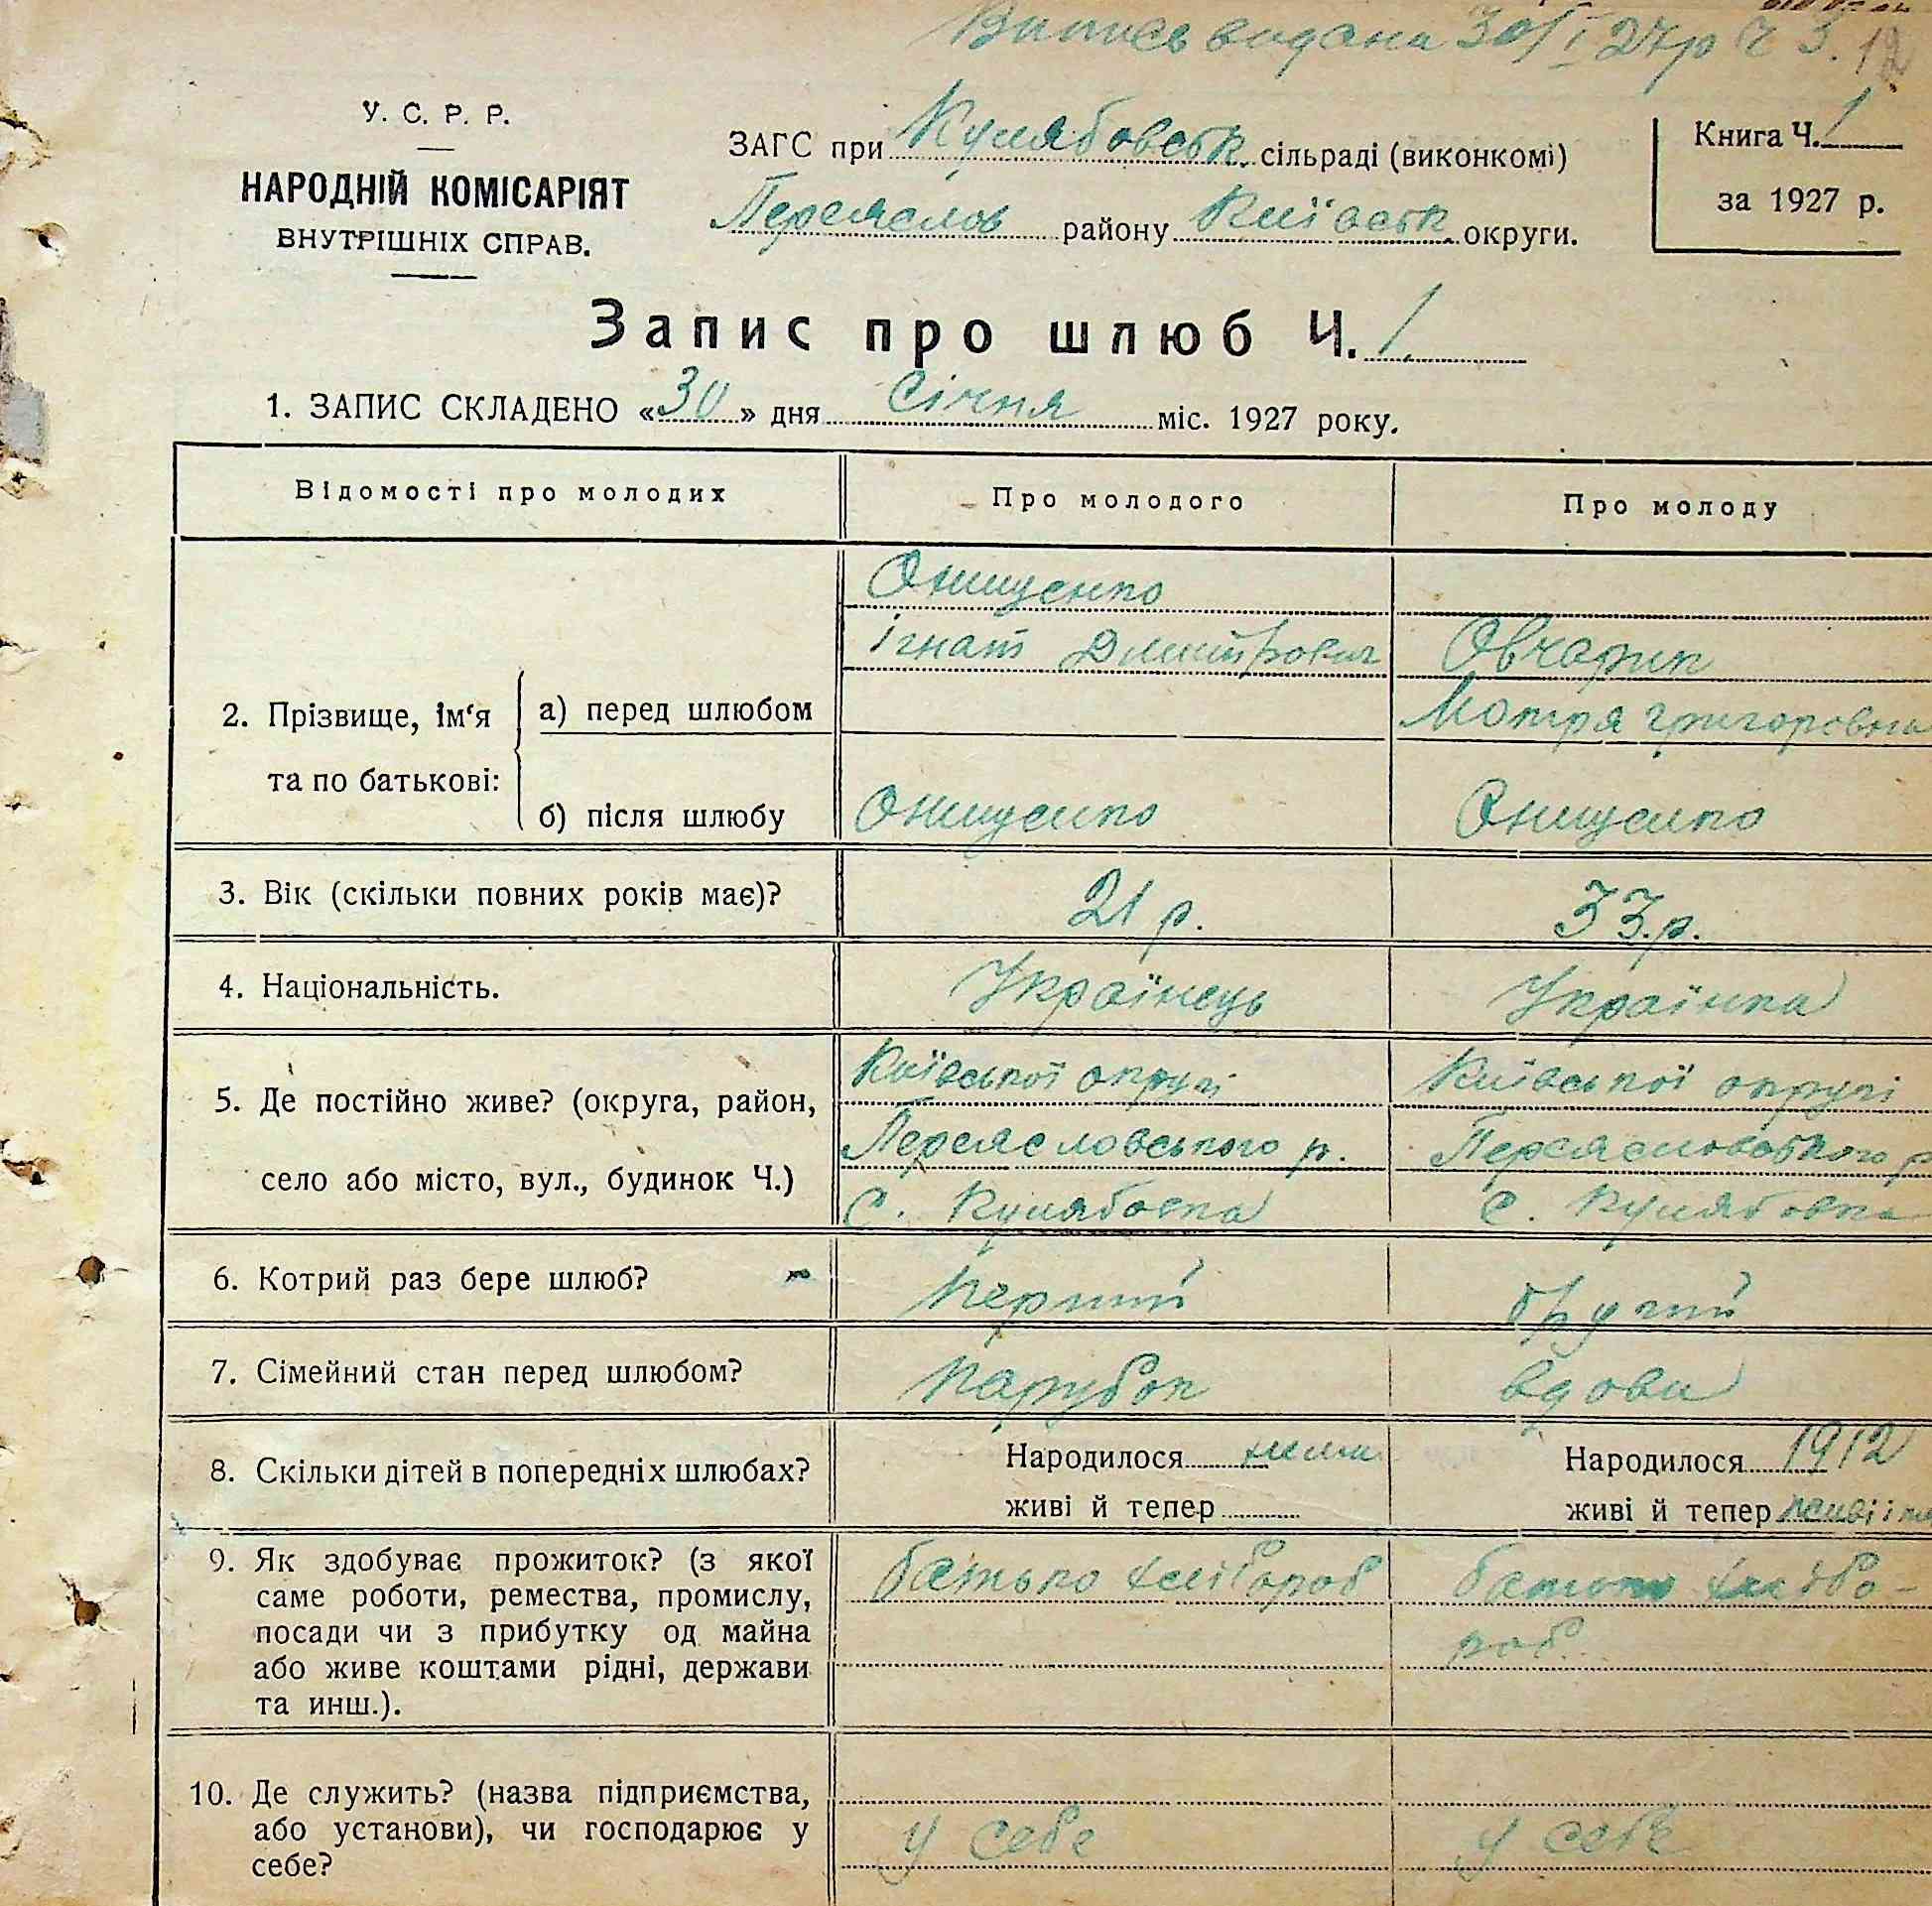 Випись видана 30/I 27р Ч 3. 12
У. С. Р. Р.
НАРОДНІЙ КОМІСАРІЯТ
ВНУТРІШНІХ СПРАВ.
ЗАГС при Кулябовськ сільраді (виконкомі)
Переяслов району Київськ округи.
Книга Ч. 1
за 1927 р.
Запис про шлюб Ч. 1
1. ЗАПИС СКЛАДЕНО «30» дня Січня міс. 1927 року.
Відомості про молодих
Про молодого
Про молоду
2. Прізвище, ім'я
та по батькові:
а) перед шлюбом
Онищенко
Ігнат Дмитрович
Овчарик
Мотря Григоровна
б) після шлюбу
Онищенко
Онищенко
3. Вік (скільки повних років має)?
21 р.
33.р.
4. Національність.
Українець
Українка
5. Де постійно живе? (округа, район,
село або місто, вул., будинок Ч.)
Київської округі
Переясловського р.
С. Кулябовка
Київської округі
Переясловського р
с. Кулябовка
6. Котрий раз бере шлюб?
перший
другий
7. Сімейний стан перед шлюбом?
парубок
вдова
8. Скільки дітей в попередніх шлюбах?
Народилося нема
живі й тепер
Народилося 1912
живі й тепер живі і
9. Як здобуває прожиток? (з якої
саме роботи, ремества, промислу,
посади чи з прибутку од майна
або живе коштами рідні, держави
та инш.).
батько хлібороб
батько хлібо-
роб.
10. Де служить? (назва підприємства,
або установи), чи господарює у
себе?
у себе
у себе